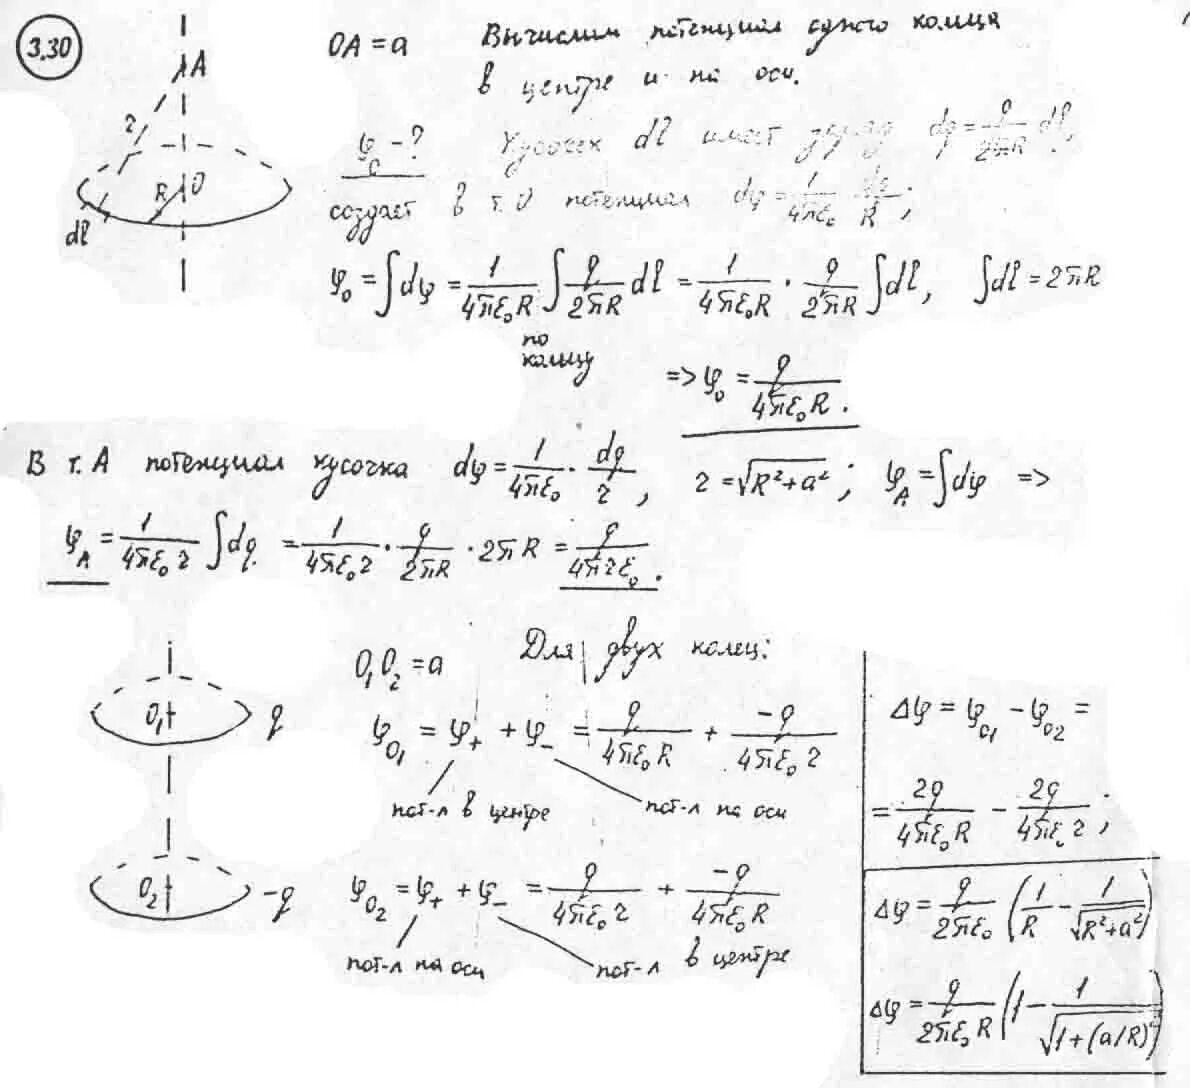 3.30
A
r
R
O
dl
OA = a
Вычислим потенциал одного кольца
в центре и на оси.
φ₀ - ?
Кусочек dl имеет заряд dq = q/(2πR) dl,
создает в т. O потенциал dφ = 1/(4πε₀) · dq/R ;
φ₀ = ∫dφ = 1/(4πε₀R) ∫ q/(2πR) dl = 1/(4πε₀R) · q/(2πR) ∫dl, ∫dl = 2πR
по
кольцу
=> φ₀ = q/(4πε₀R).
В т. A потенциал кусочка dφ = 1/(4πε₀) · dq/r, r = √(R²+a²) ; φ_A = ∫dφ =>
φ_A = 1/(4πε₀r) ∫dq = 1/(4πε₀r) · q/(2πR) · 2πR = q/(4πrε₀).
O₁
q
O₂
-q
O₁O₂ = a
Для двух колец:
φ_O₁ = φ₊ + φ₋ = q/(4πε₀R) + -q/(4πε₀r)
пот-л в центре
пот-л на оси
φ_O₂ = φ₊ + φ₋ = q/(4πε₀r) + -q/(4πε₀R)
пот-л на оси
пот-л в центре
Δφ = φ_O₁ - φ_O₂ =
= 2q/(4πε₀R) - 2q/(4πε₀r) ;
Δφ = q/(2πε₀) (1/R - 1/√(R²+a²))
Δφ = q/(2πε₀R) (1 - 1/√(1+(a/R)²))